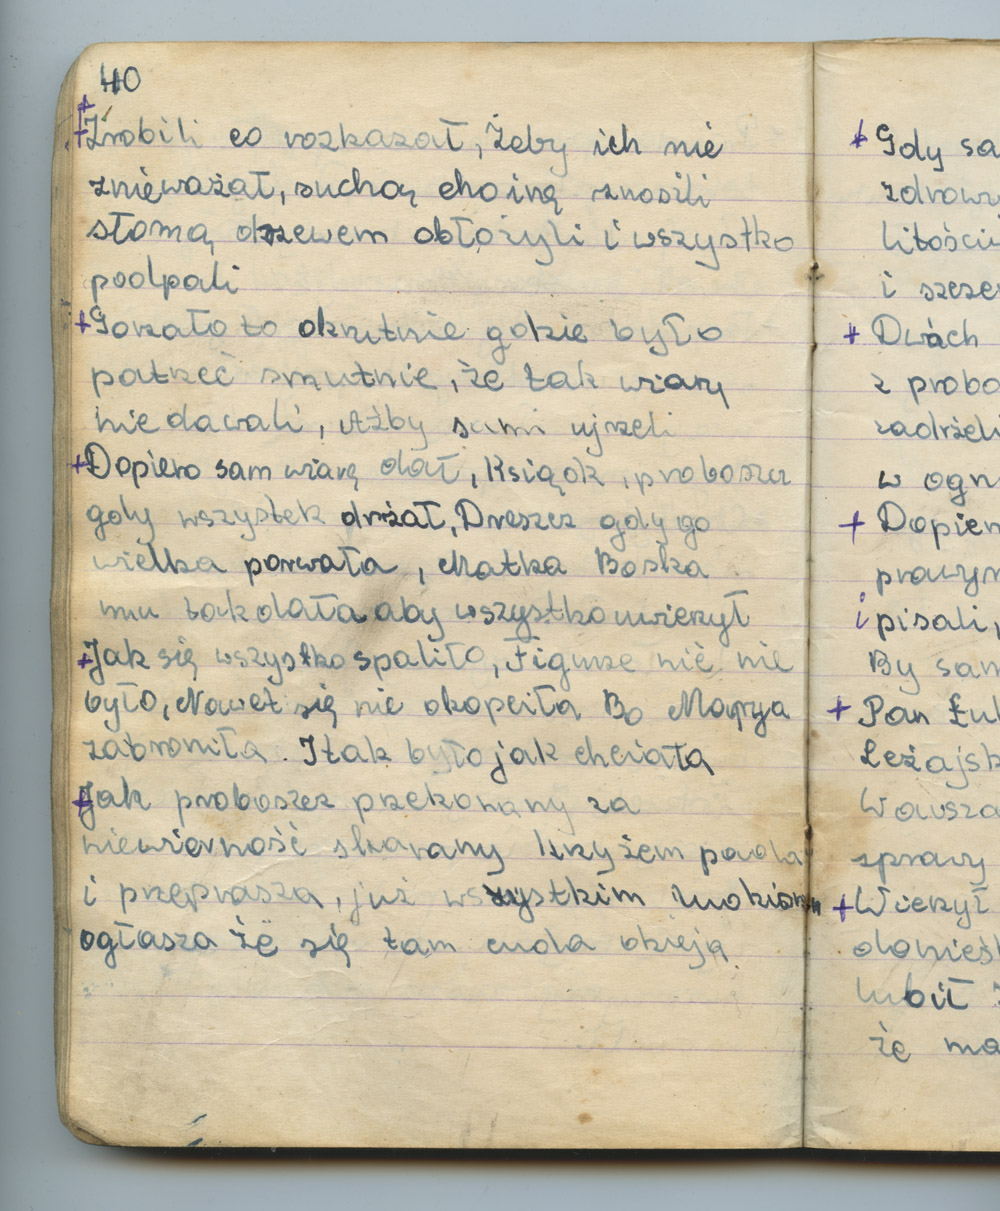 40
+Zrobili co rozkazał, żeby ich nie
znieważał, suchą choiną znosili
słomą drzewem obłożyli i wszystko
podpali
+Gorzało to okrutnie gdzie było
patrzeć smutnie, że tak wiary
nie dawali, Ażby sami ujrzeli
+Dopiero sam wiarę dał, Ksiądz, proboszcz
gdy wszystek drżał, Dreszcz gdy go
wielka porwała, Matka Boska
mu tak dała aby wszystko uwierzył
+Jak się wszystko spaliło, Figurze nie nie
było, Nawet się nie okopciła Bo Maryja
zabroniła. I tak było jak chciała
+Jak proboszcz przekonany za
niewierność skarany Krzyżem pada
i przeprasza, już wszystkim ludziom
ogłasza że się tam cuda dzieją.
+ Gdy sa
zdrowy
litości
i szcze
+ Dwóch
z probo
zadrżeli
w ogn
+ Dopier
prawym
i pisali,
By sam
+ Pan Łuk
Leżajsk
Warsza
sprawy
+Wierzył
donieśl
lubił
że ma